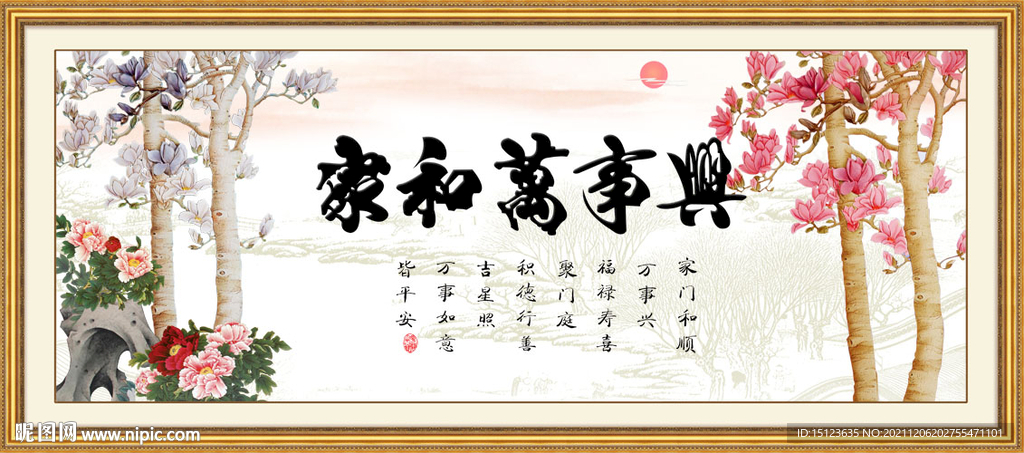 家和萬事興
家门和顺
万事兴
福禄寿喜
聚门庭
积德行善
吉星照
万事如意
皆平安
昵图网 www.nipic.com
ID:15123635 NO:20211206202755471101